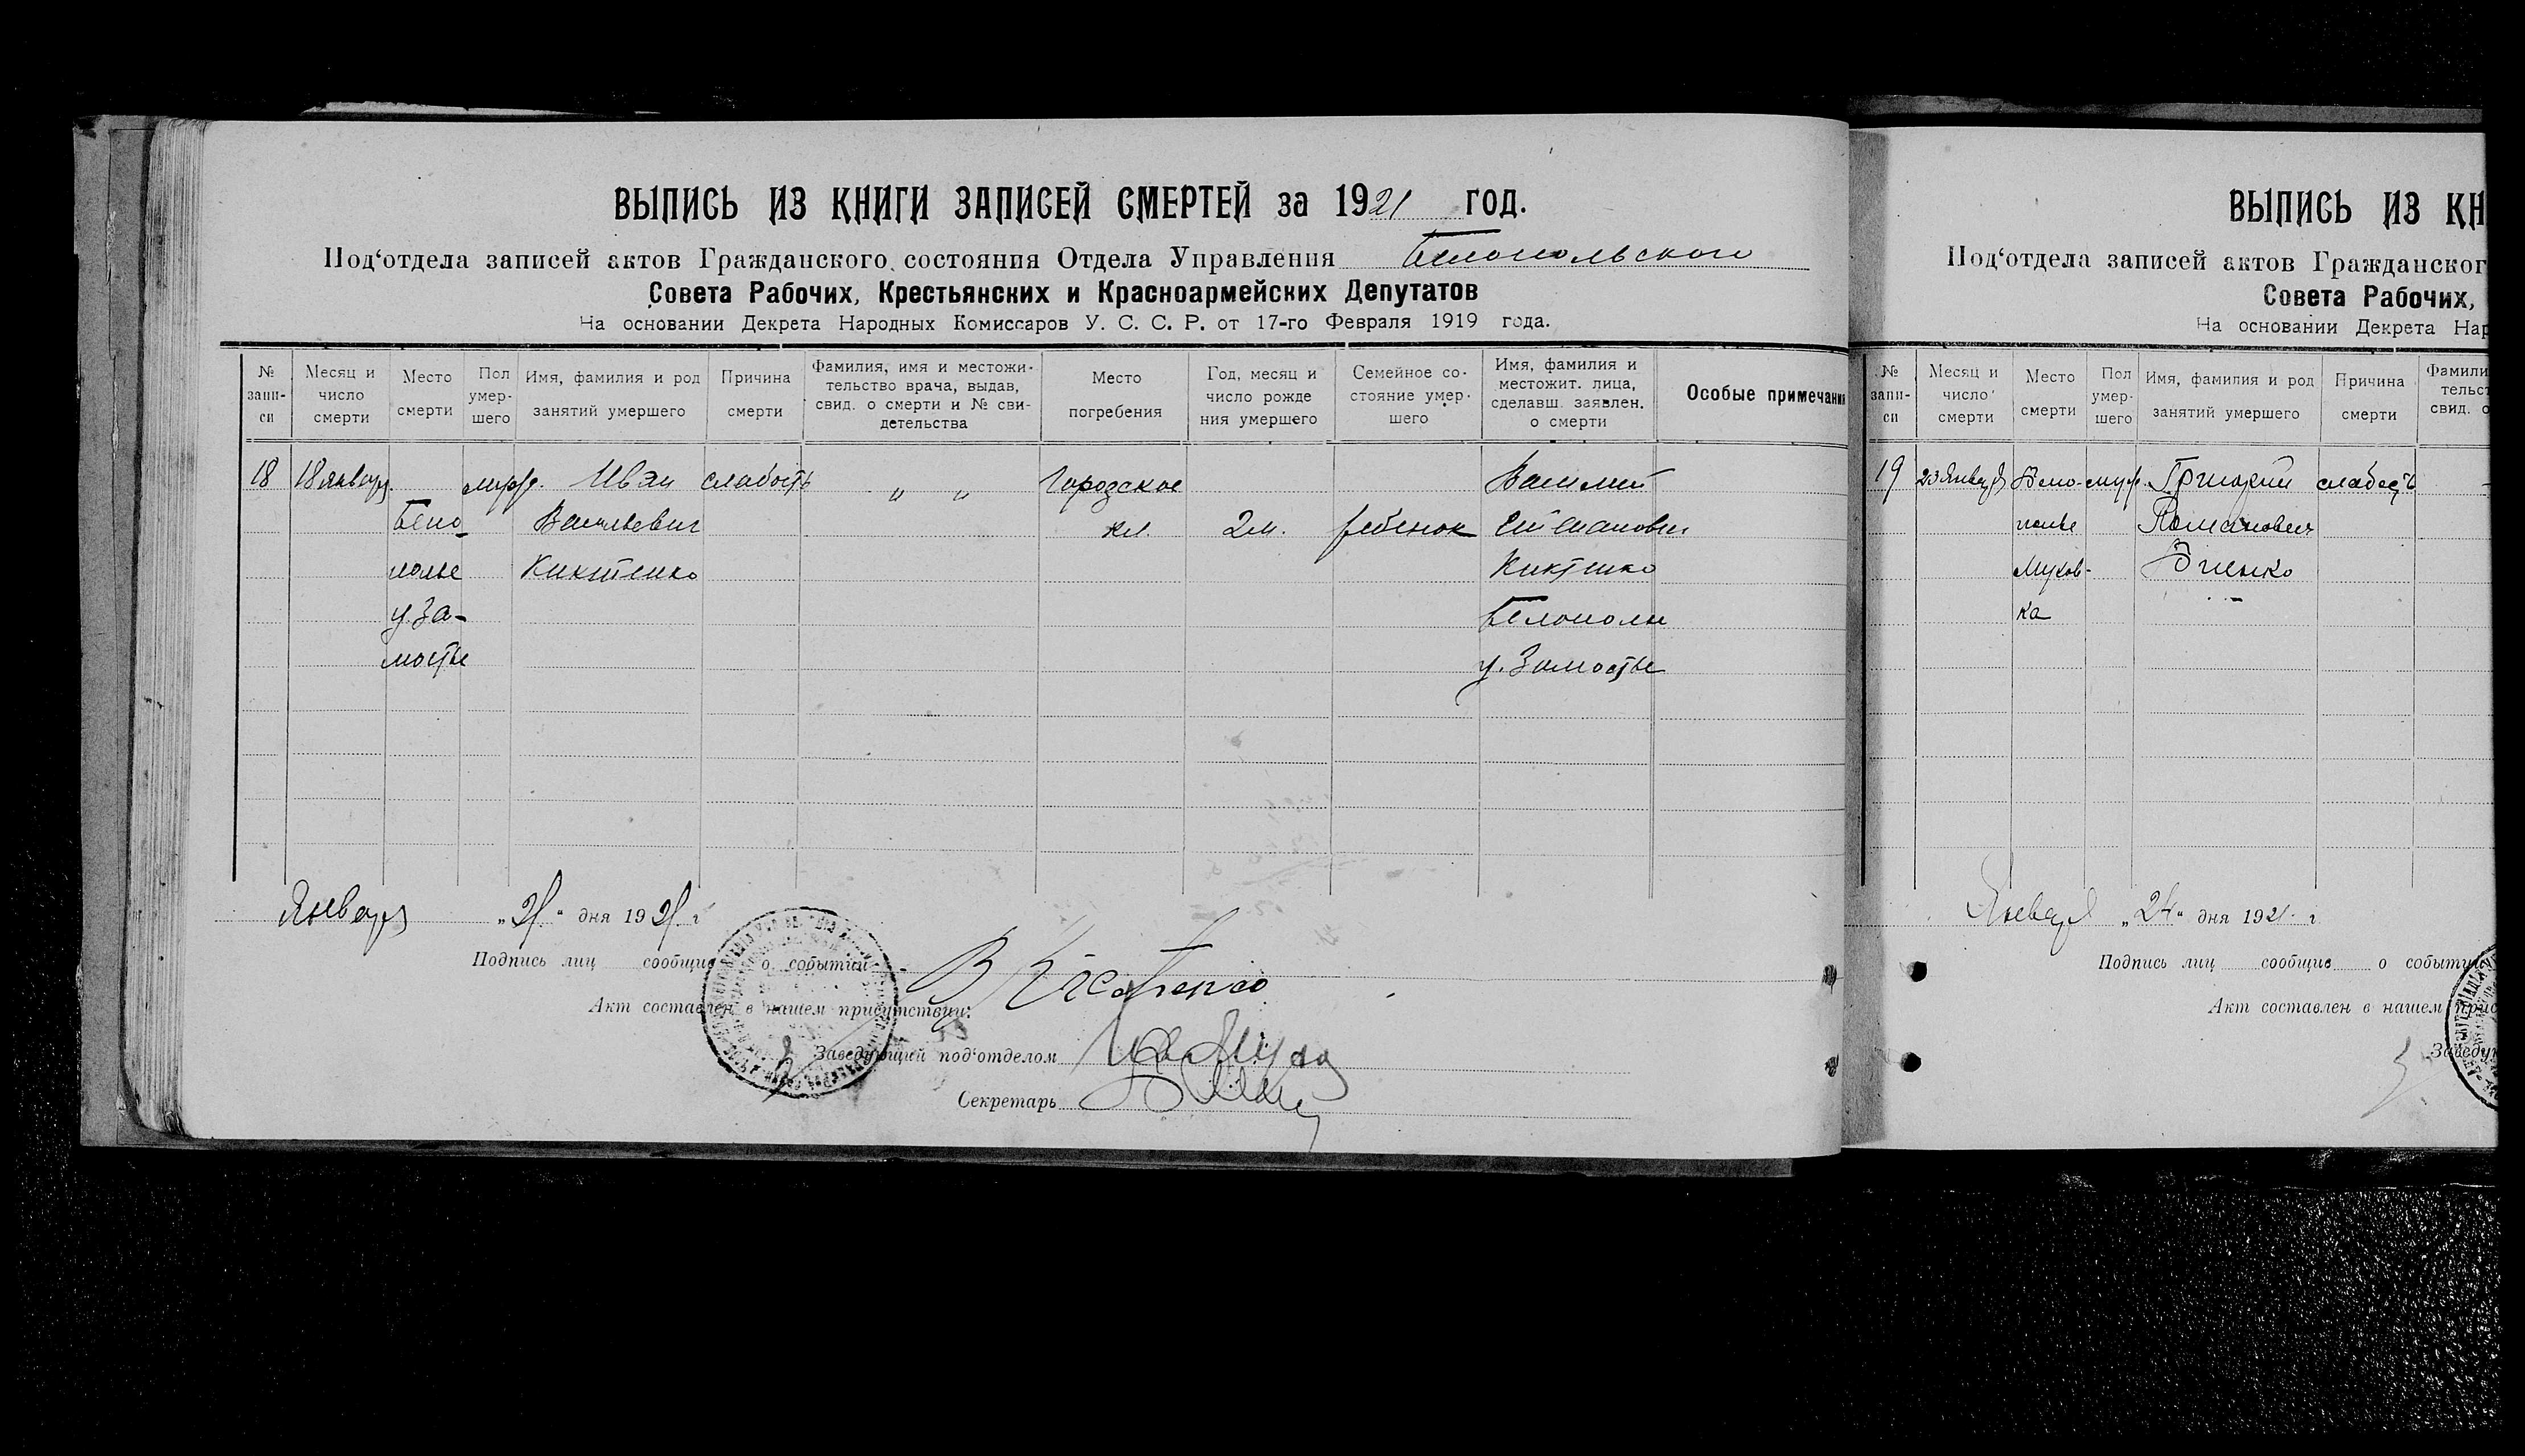 ВЫПИСЬ ИЗ КНИГИ ЗАПИСЕЙ СМЕРТЕЙ за 1921 год.
Под‘отдела записей актов Гражданского состояния Отдела Управления Белопольского
Совета Рабочих, Крестьянских и Красноармейских Депутатов
На основании Декрета Народных Комиссаров У. С. С. Р. от 17-го Февраля 1919 года.
№ запи-си
Месяц и число смерти
Место смерти
Пол умер-шего
Имя, фамилия и род занятий умершего
Причина смерти
Фамилия, имя и местожи-тельство врача, выдав, свид. о смерти и № сви-детельства
Место погребения
Год, месяц и число рожде ния умершего
Семейное со-стояние умер-шего
Имя, фамилия и местожит. лица, сделавш. заявлен. о смерти
Особые примечания
18 18 января муж. Иван слабость „ „ Городское Василий
Бело- Васильевич кл. 2 м. ребенок Степанович
полье Никитенко
у. За- Белополье
мостье у. Замостье
Января „21“ дня 1921 г
Подпись лиц сообщив о событии
Акт составлен в нашем присутствии:
Заведующий под‘отделом
Секретарь
ВЫПИСЬ ИЗ КН
Под‘отдела записей актов Гражданског
Совета Рабочих,
На основании Декрета Нар
№ запи-си
Месяц и число смерти
Место смерти
Пол умер-шего
Имя, фамилия и род занятий умершего
Причина смерти
Фамили
тельст
свид. о
19 23 Января Бело- муж. Григорий слабость
полье Романович
Мухов-
ка
Января „24“ дня 1921 г.
Подпись лиц сообщив о событи
Акт составлен в нашем прис
Заведу